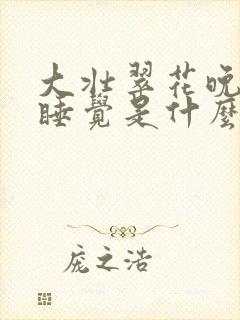 大壮翠花晚
睡覺是什麼
庞之浩